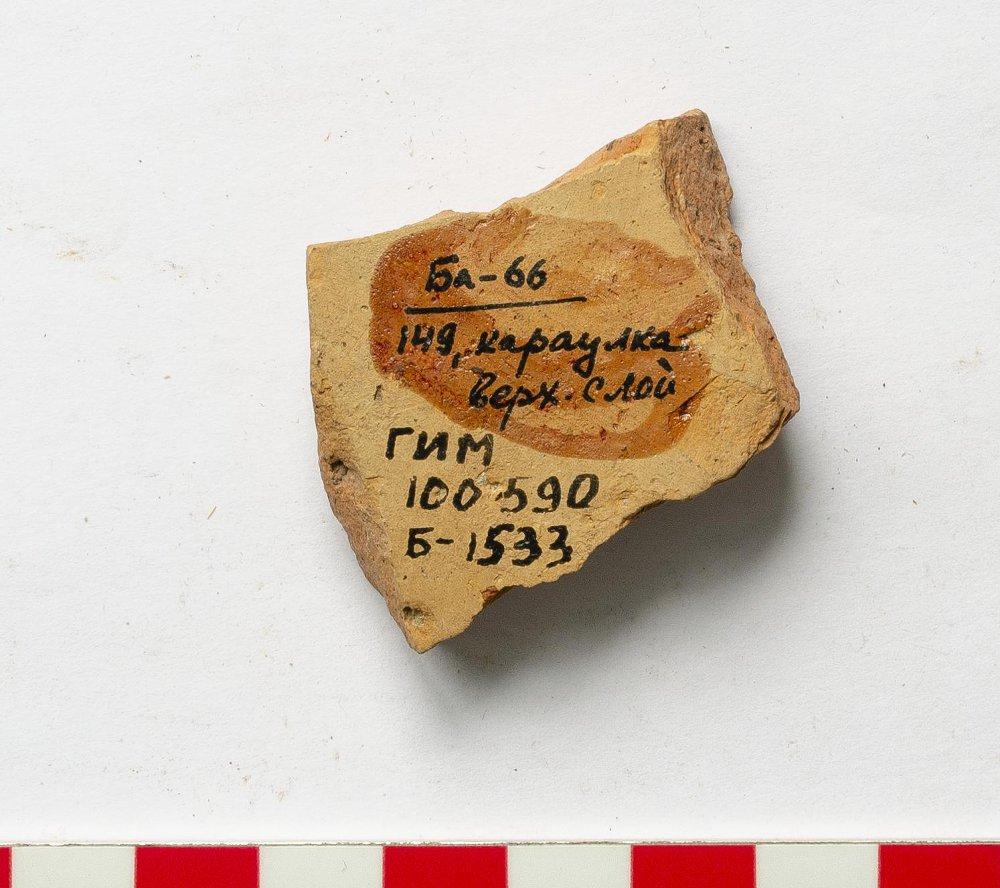 Бл-66
149, караулка
верх. слой
ГИМ
100 590
Б-1533